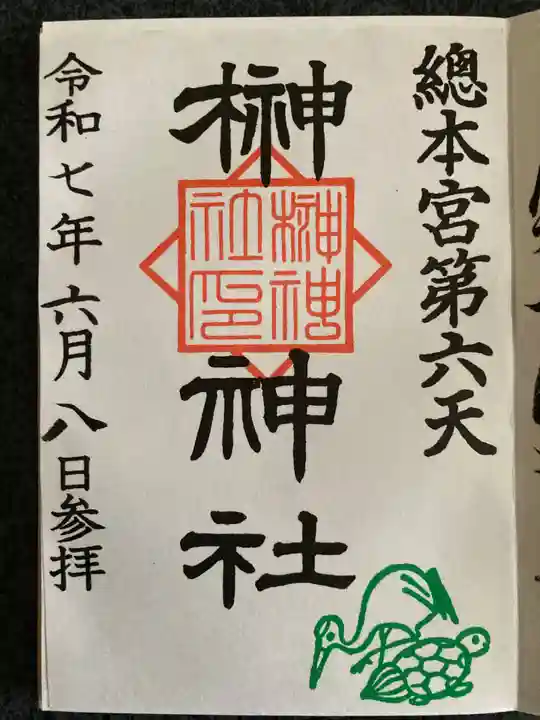 總本宮第六天
榊神社
榊神
社印
令和七年六月八日参拝